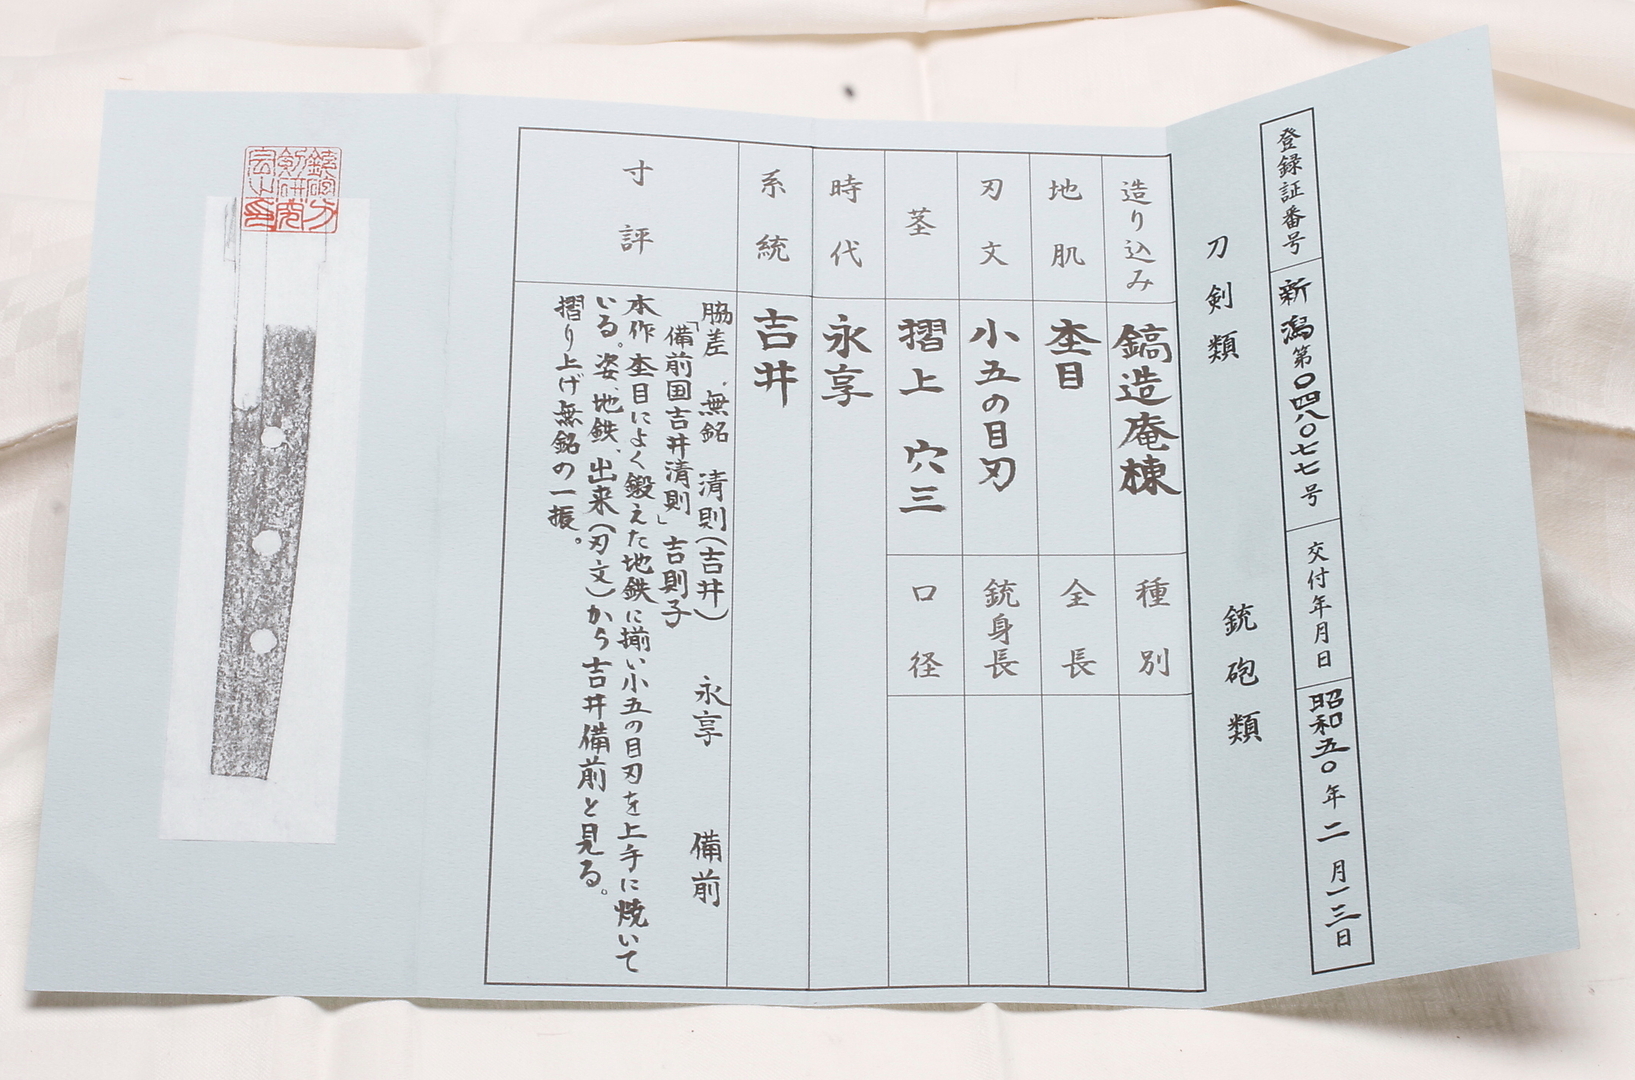 登録証番号 新潟第〇四八〇七七号 交付年月日 昭和五〇年二月一三日
刀剣類 銃砲類
造り込み 鎬造庵棟 種別
地肌 杢目 全長
刃文 小五の目刃 銃身長
茎 摺上 穴三 口径
時代 永享
系統 吉井
寸評 脇差 無銘 清則(吉井) 永享 備前
「備前国吉井清則」吉則子
本作杢目によく鍛えた地鉄に揃い小五の目刃を上手に焼いて
いる。姿、地鉄、出来(刃文)から吉井備前と見る。
摺り上げ無銘の一振。